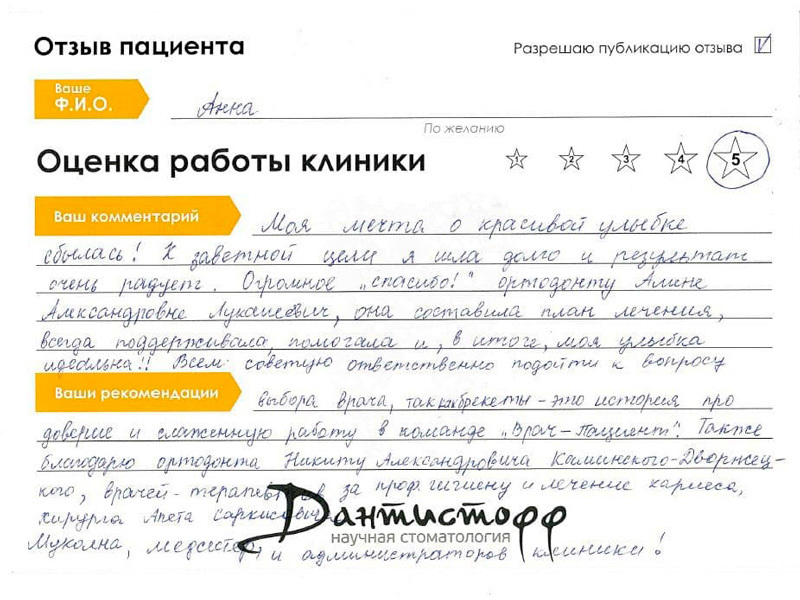 Отзыв пациента
Разрешаю публикацию отзыва
Ваше
Ф.И.О.
Анна
По желанию
Оценка работы клиники
1 2 3 4 5
Ваш комментарий
Моя мечта о красивой улыбке
сбылась! К заветной цели я шла долго и результат
очень радует. Огромное "спасибо!" ортодонту Алине
Александровне Лукашевич, она составила план лечения,
всегда поддерживала, помогала и, в итоге, моя улыбка
идеальна!! Всем советую ответственно подойти к вопросу
Ваши рекомендации
выбора врача, так как брекеты - это история про
доверие и слаженную работу в команде "Врач-Пациент". Также
благодарю ортодонта Никиту Александровича Каминского-Дворжец-
кого, врачей-терапевтов за проф.гигиену и лечение кариеса,
хирурга Саркисовича
Дантистофф
научная стоматология
и администраторов клиники!